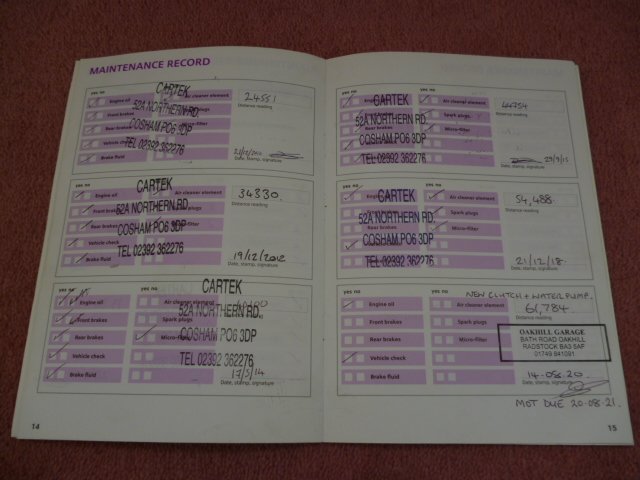 MAINTENANCE RECORD
yes no
Engine oil
Air cleaner element
Front brakes
Spark plugs
Rear brakes
Micro-filter
Vehicle check
Brake fluid
CARTEK
52A NORTHERN RD.
COSHAM PO6 3DP
TEL 02392 362276
24551
Distance reading
Date, stamp, signature
yes no
Engine oil
Air cleaner element
Front brakes
Spark plugs
Rear brakes
Vehicle check
Brake fluid
CARTEK
52A NORTHERN RD.
COSHAM PO6 3DP
TEL 02392 362276
34330.
Distance reading
19/12/2012
Date, stamp, signature
yes no
Engine oil
Air cleaner element
Front brakes
Spark plugs
Rear brakes
Micro-filter
Vehicle check
Brake fluid
CARTEK
52A NORTHERN RD.
COSHAM PO6 3DP
TEL 02392 362276
17/3/14
Date, stamp, signature
14
yes no
Engine oil
Air cleaner element
Spark plugs
Rear brakes
Micro-filter
CARTEK
52A NORTHERN RD.
COSHAM PO6 3DP
TEL 02392 362276
Distance reading
29/9/15
Date, stamp, signature
yes no
Engine oil
Air cleaner element
Spark plugs
Rear brakes
Micro-filter
CARTEK
52A NORTHERN RD.
COSHAM PO6 3DP
TEL 02392 362276
54,488.
Distance reading
21/12/18.
Date, stamp, signature
yes no
NEW CLUTCH + WATER PUMP.
Engine oil
Air cleaner element
61,784.
Distance reading
Front brakes
Spark plugs
Rear brakes
Micro-filter
Vehicle check
Brake fluid
OAKHILL GARAGE
BATH ROAD OAKHILL
RADSTOCK BA3 5AF
01749 841081
14-08-20.
Date, stamp, signature
MOT DUE 20-08-21.
15